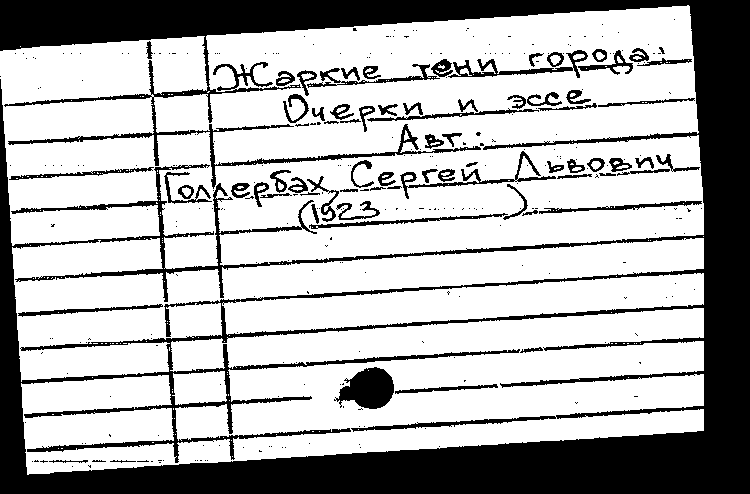 Жаркие тени города:
Очерки и эссе
Авт.:
Голлербах, Сергей Львович
(1923 )